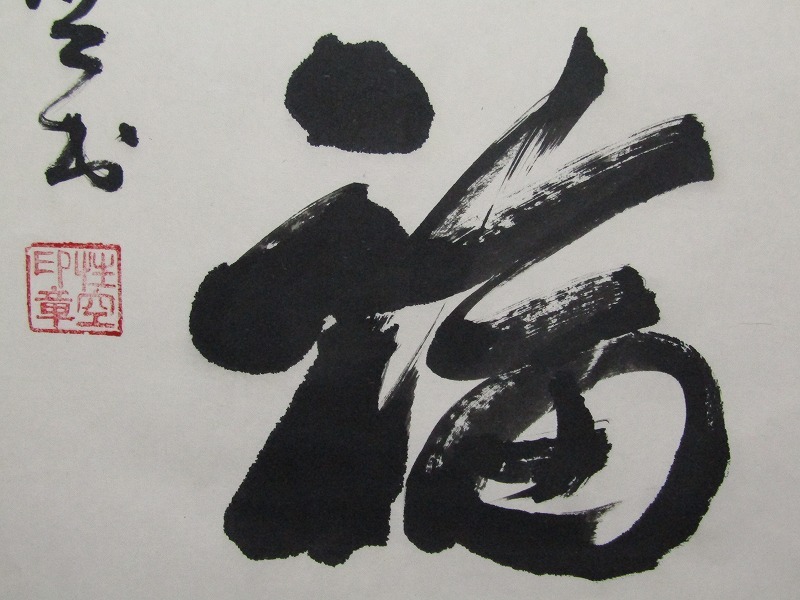 福
性空
印章